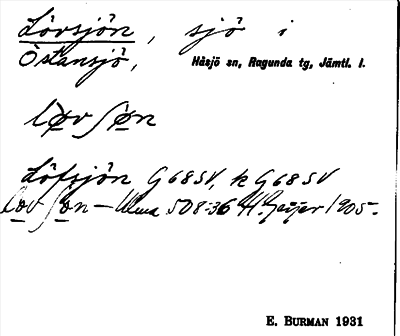 Lövsjön, sjö i
Östansjö, Håsjö sn, Ragunda tg, Jämtl. l.
løvʃøn
Löfsjön G 68 SV, k G 68 SV
løvʃøn – Uma 508:36 H. Geijer 1905.
E. BURMAN 1931